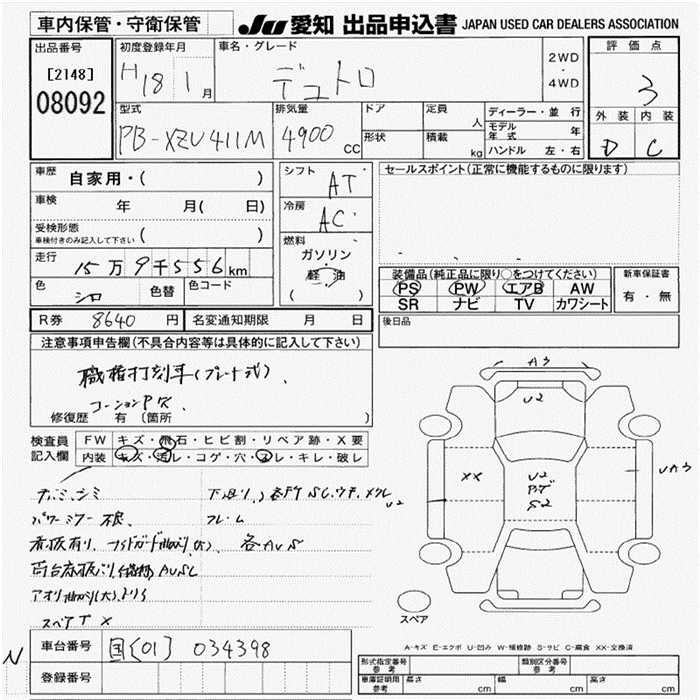 車内保管・守衛保管
JU 愛知 出品申込書 JAPAN USED CAR DEALERS ASSOCIATION
出品番号
[2148]
08092
初度登録年月
H18 1月
車名・グレード
デュトロ
2WD
・
4WD
評価点
3
外装 内装
D C
型式
PB-XZU411M
排気量
4900 CC
ドア
形状
定員 人
積載 kg
ディーラー・並行
モデル年式 年
ハンドル 左・右
車歴 自家用・( )
車検 年 月( 日)
受検形態
車検付きのみ記入して下さい ( )
走行 15万9千556km
色 シロ 色替 色コード
シフト AT
冷房 AC
燃料
ガソリン
・
軽油
( )
セールスポイント(正常に機能するものに限ります)
装備品(純正品に限り○をつけてください)
PS PW エアB AW
SR ナビ TV カワシート
新車保証書
有・無
R券 8640円 名変通知期限 月 日
後日品
注意事項申告欄(不具合内容等は具体的に記入して下さい)
職権打刻車(プレート式)、
コーションPX
修復歴 有 (箇所 )
検査員
記入欄
FW キズ・飛石・ヒビ割・リペア跡・X要
内装 キズ・汚レ・コゲ・穴・スレ・キレ・破レ
パワーミラー不良、 フレーム
スペアTX
A3
U2
XX
U2
S2
U2
UA3
スペア
A-キズ E-エクボ U-凹み W-補修跡 S-サビ C-腐食 XX-交換済
N
車台番号 国[01] 034398
登録番号
形式指定番号
参考
類別区分番号
参考
車庫証明用
参考
長さ cm 幅 cm 高さ cm